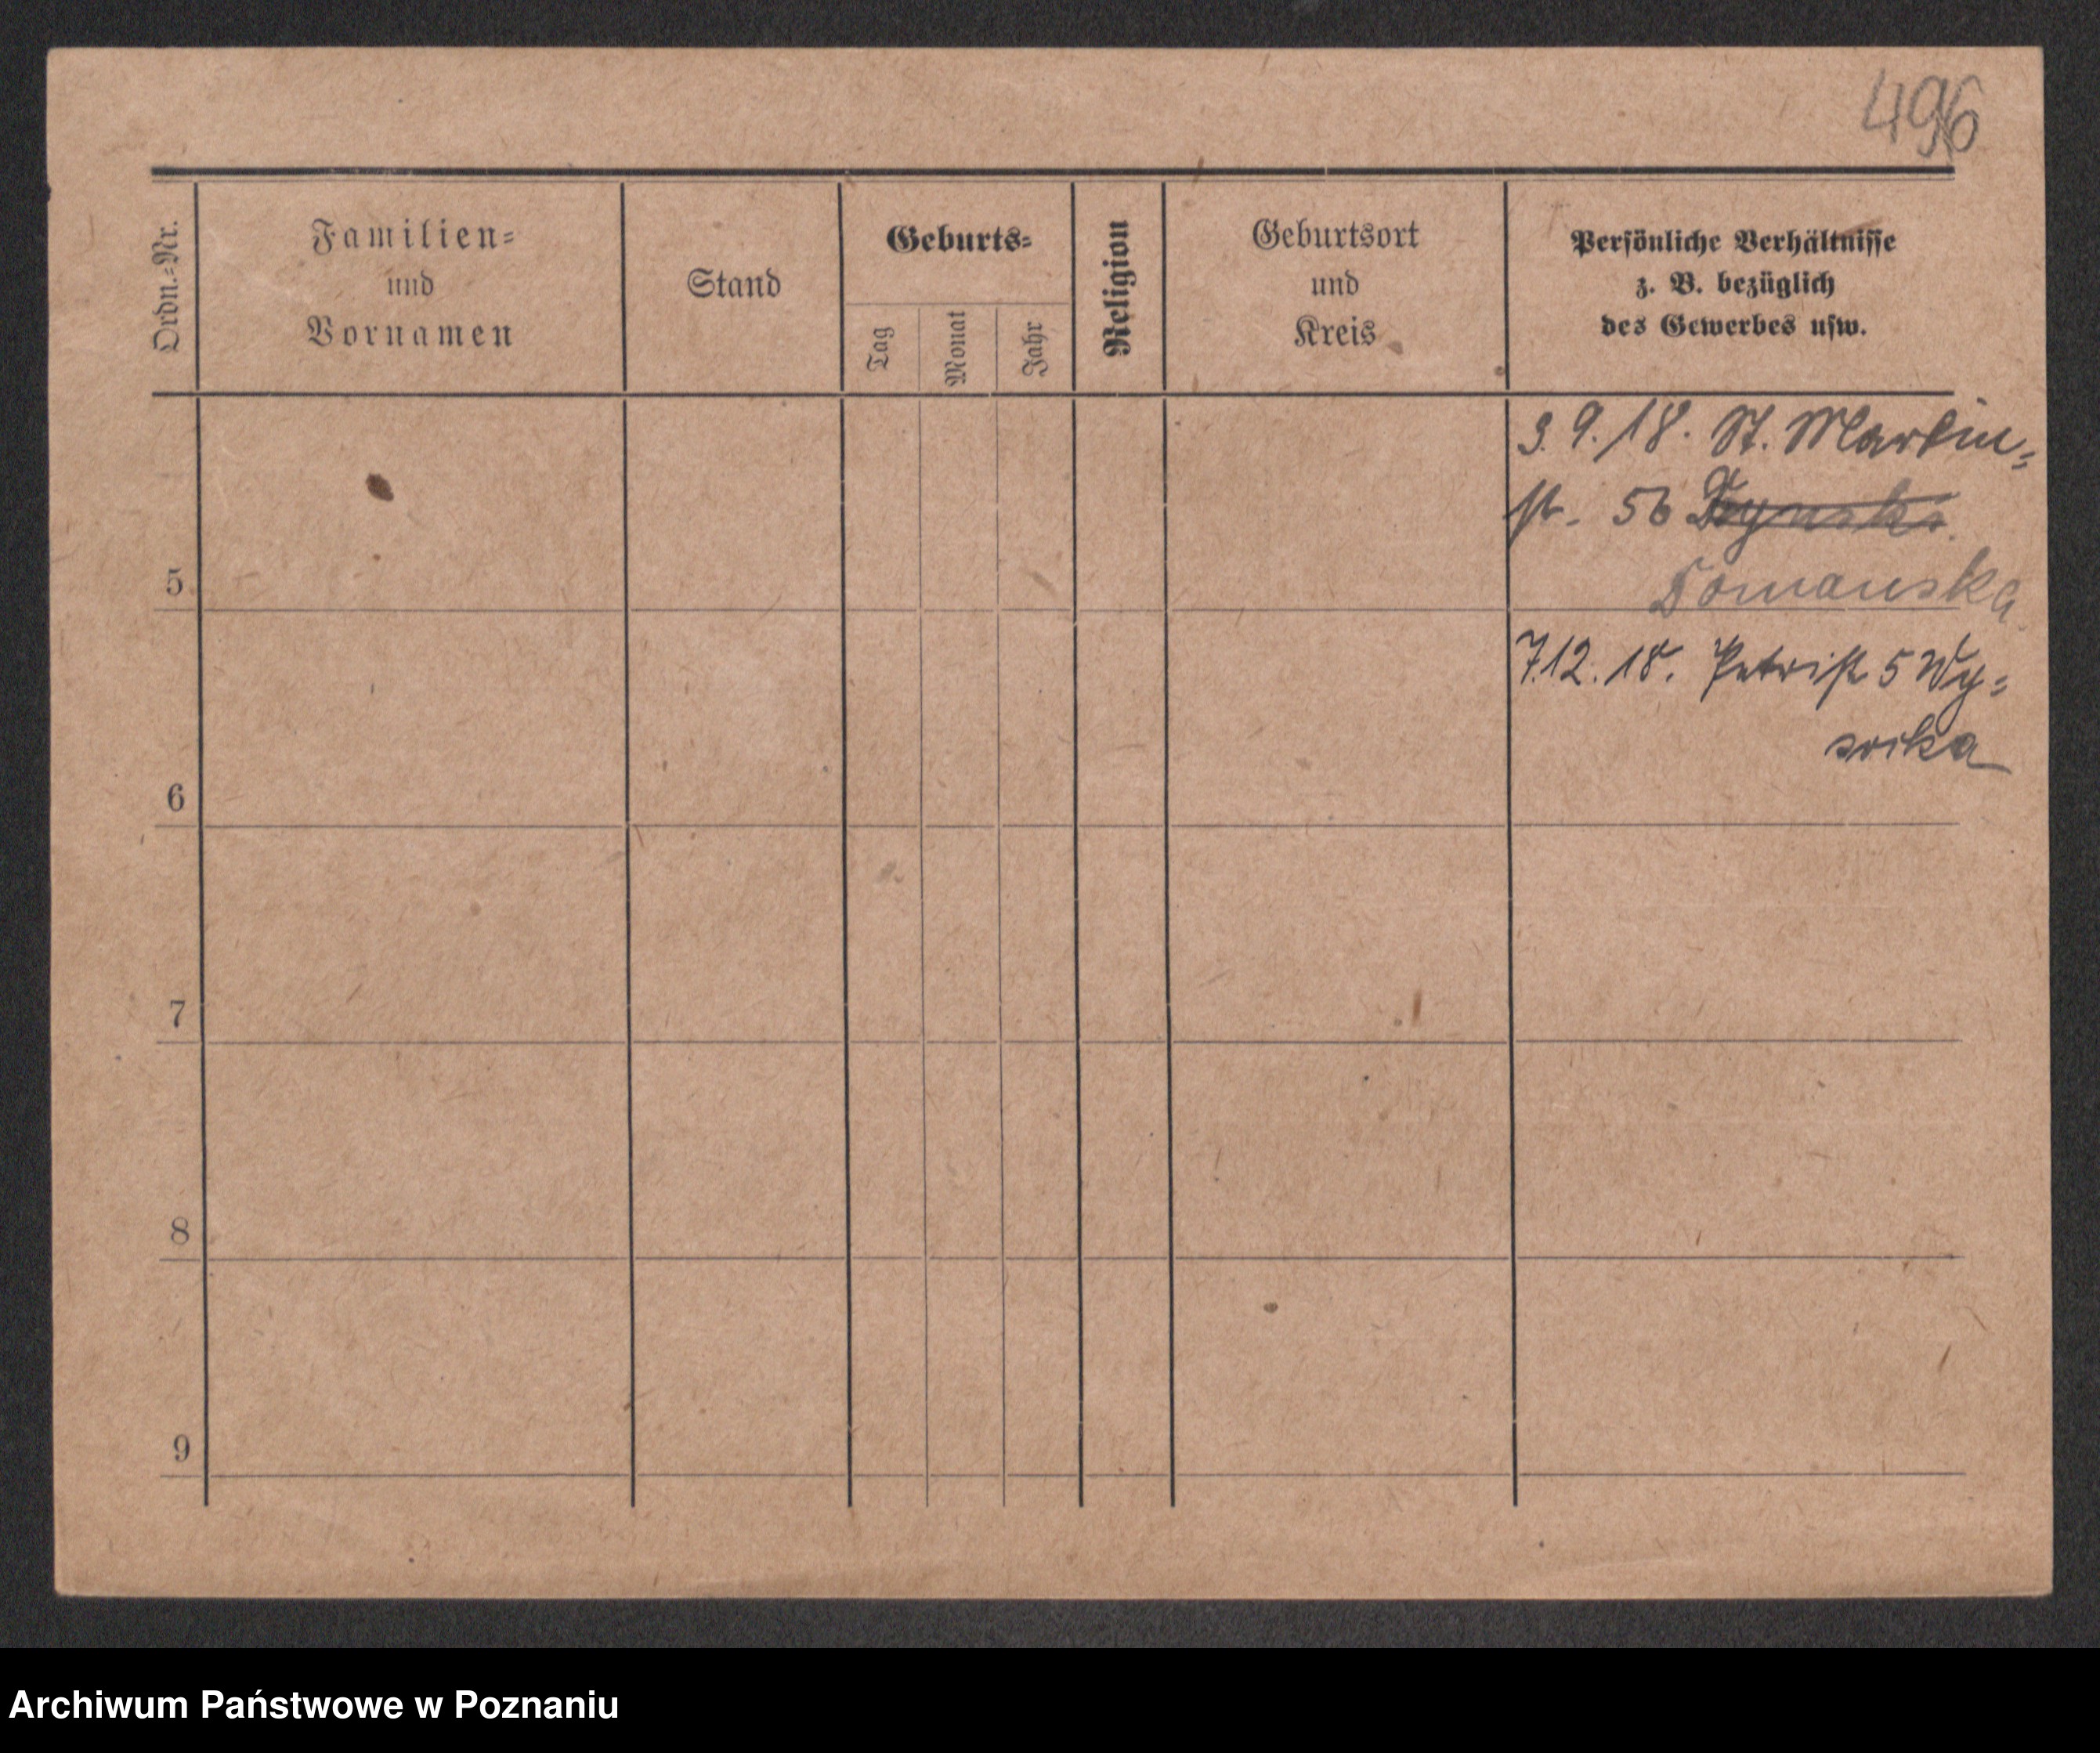 496
Ordn.=Nr.
Familien=
und
Vornamen
Stand
Geburts=
Tag
Monat
Jahr
Religion
Geburtsort
und
Kreis
Persönliche Verhältnisse
z. B. bezüglich
des Gewerbes usw.
3.9.18. St. Martin=
st. 56
Domanska
5
7.12.18. Petrist 5 Wy=
6
7
8
9
Archiwum Państwowe w Poznaniu